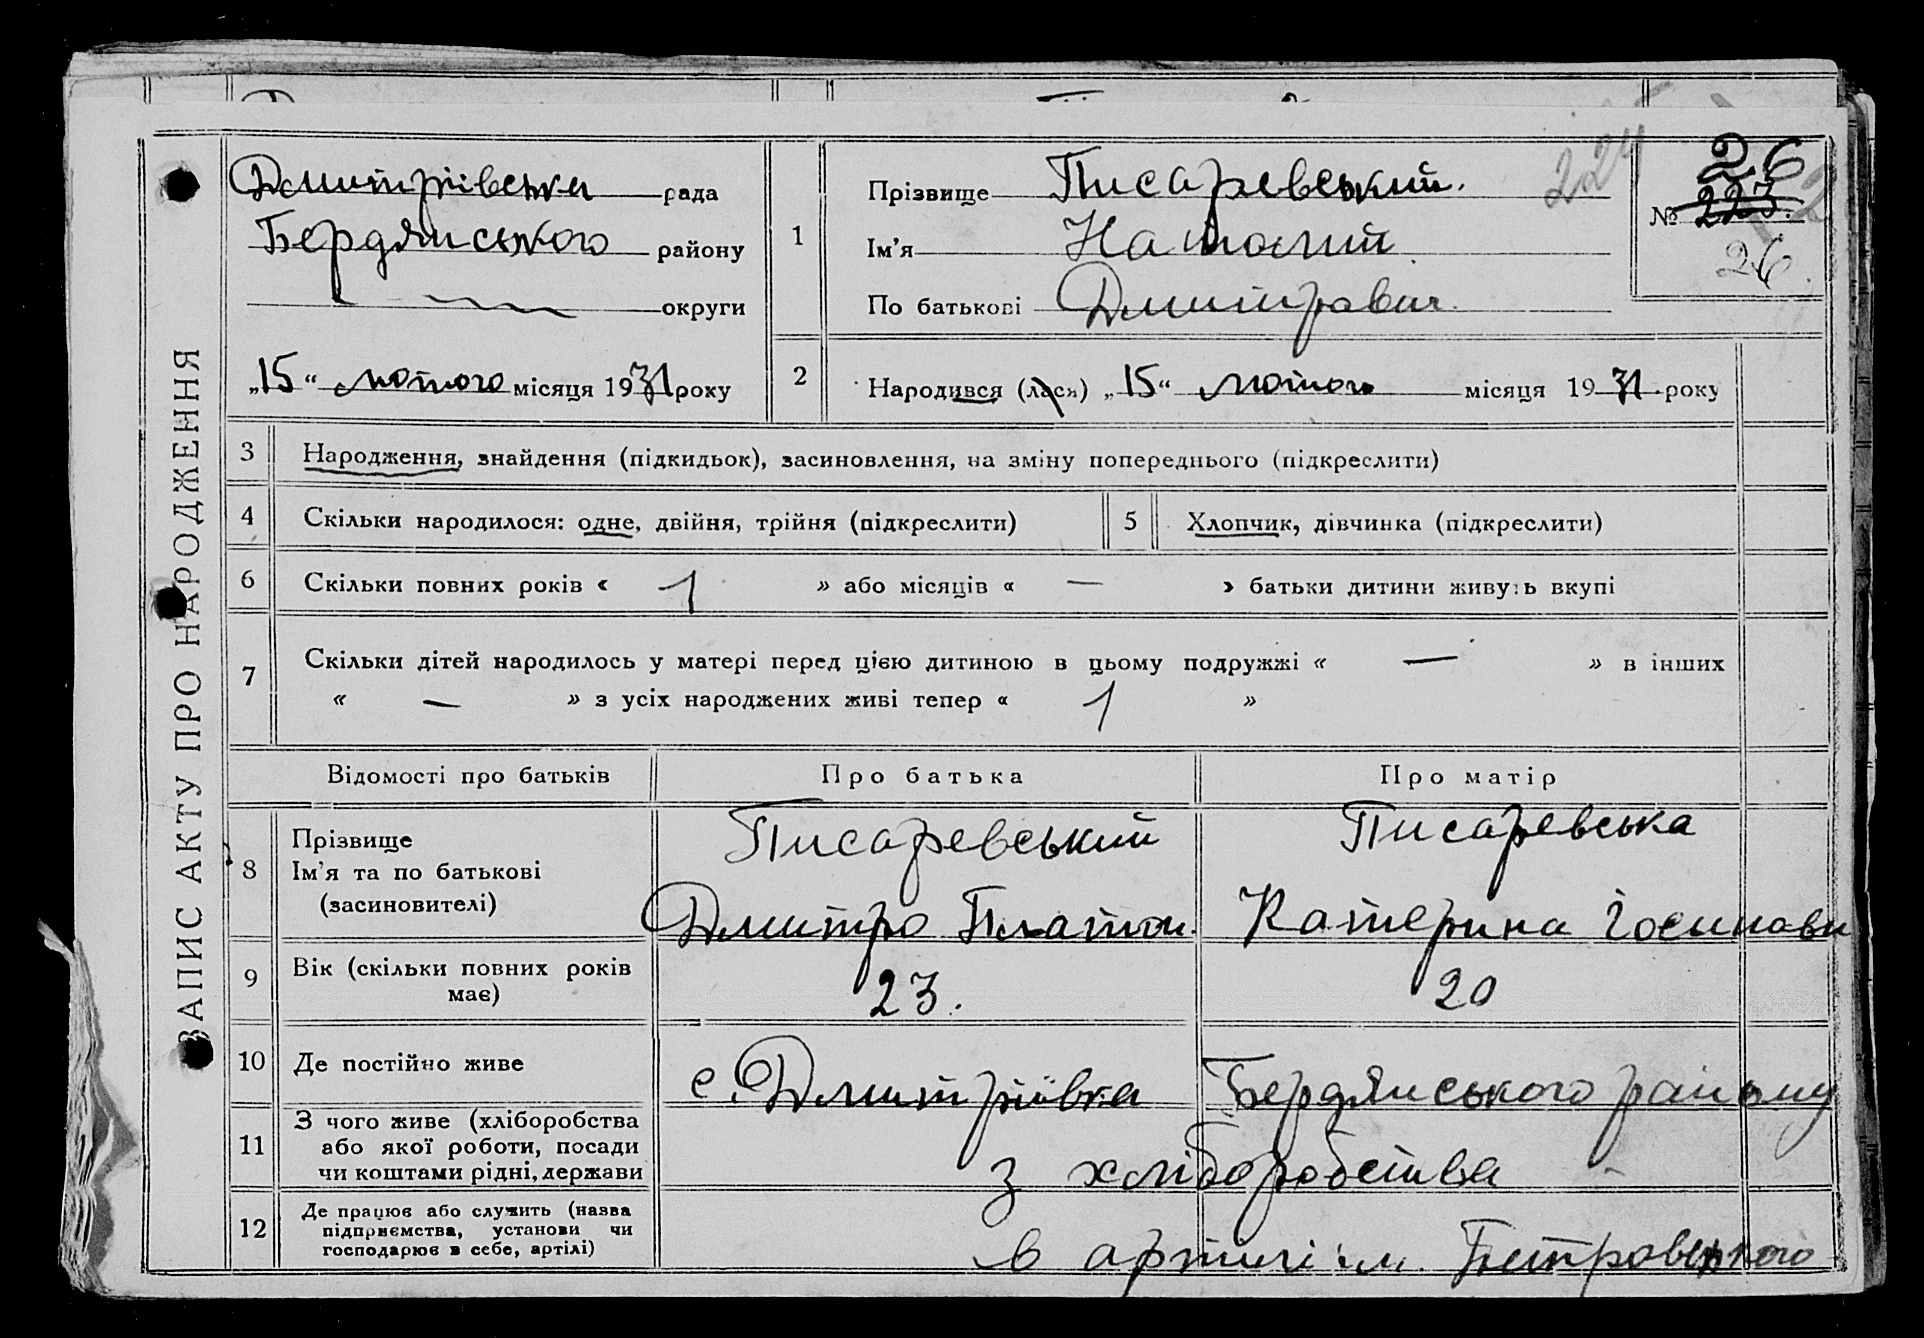 ЗАПИС АКТУ ПРО НАРОДЖЕННЯ
Дмитрівська рада
Бердянського району
округи
„15“ лютого місяця 1931 року
1
Прізвище Писаревський.
Ім'я Натолий
По батькові Дмитрович.
224
26
№ 223.
26
2
Народився (лася) „15“ лютого місяця 1931 року
3 Народження, знайдення (підкидьок), засиновлення, на зміну попереднього (підкреслити)
4 Скільки народилося: одне, двійня, трійня (підкреслити)
5 Хлопчик, дівчинка (підкреслити)
6 Скільки повних років « 1 » або місяців « — » батьки дитини живуть вкупі
7 Скільки дітей народилось у матері перед цією дитиною в цьому подружжі « — » в інших
« — » з усіх народжених живі тепер « 1 »
Відомості про батьків Про батька Про матір
8 Прізвище
Ім'я та по батькові
(засиновителі)
Писаревський
Дмитро Платон.
Писаревська
Катерина
9 Вік (скільки повних років
має)
23. 20
10 Де постійно живе с. Дмитріївка Бердянського району
11 З чого живе (хліборобства
або якої роботи, посади
чи коштами рідні, держави
з хліборобства
12 Де працює або служить (назва
підприємства, установи чи
господарює в себе, артілі)
в артілі ім. Петровського